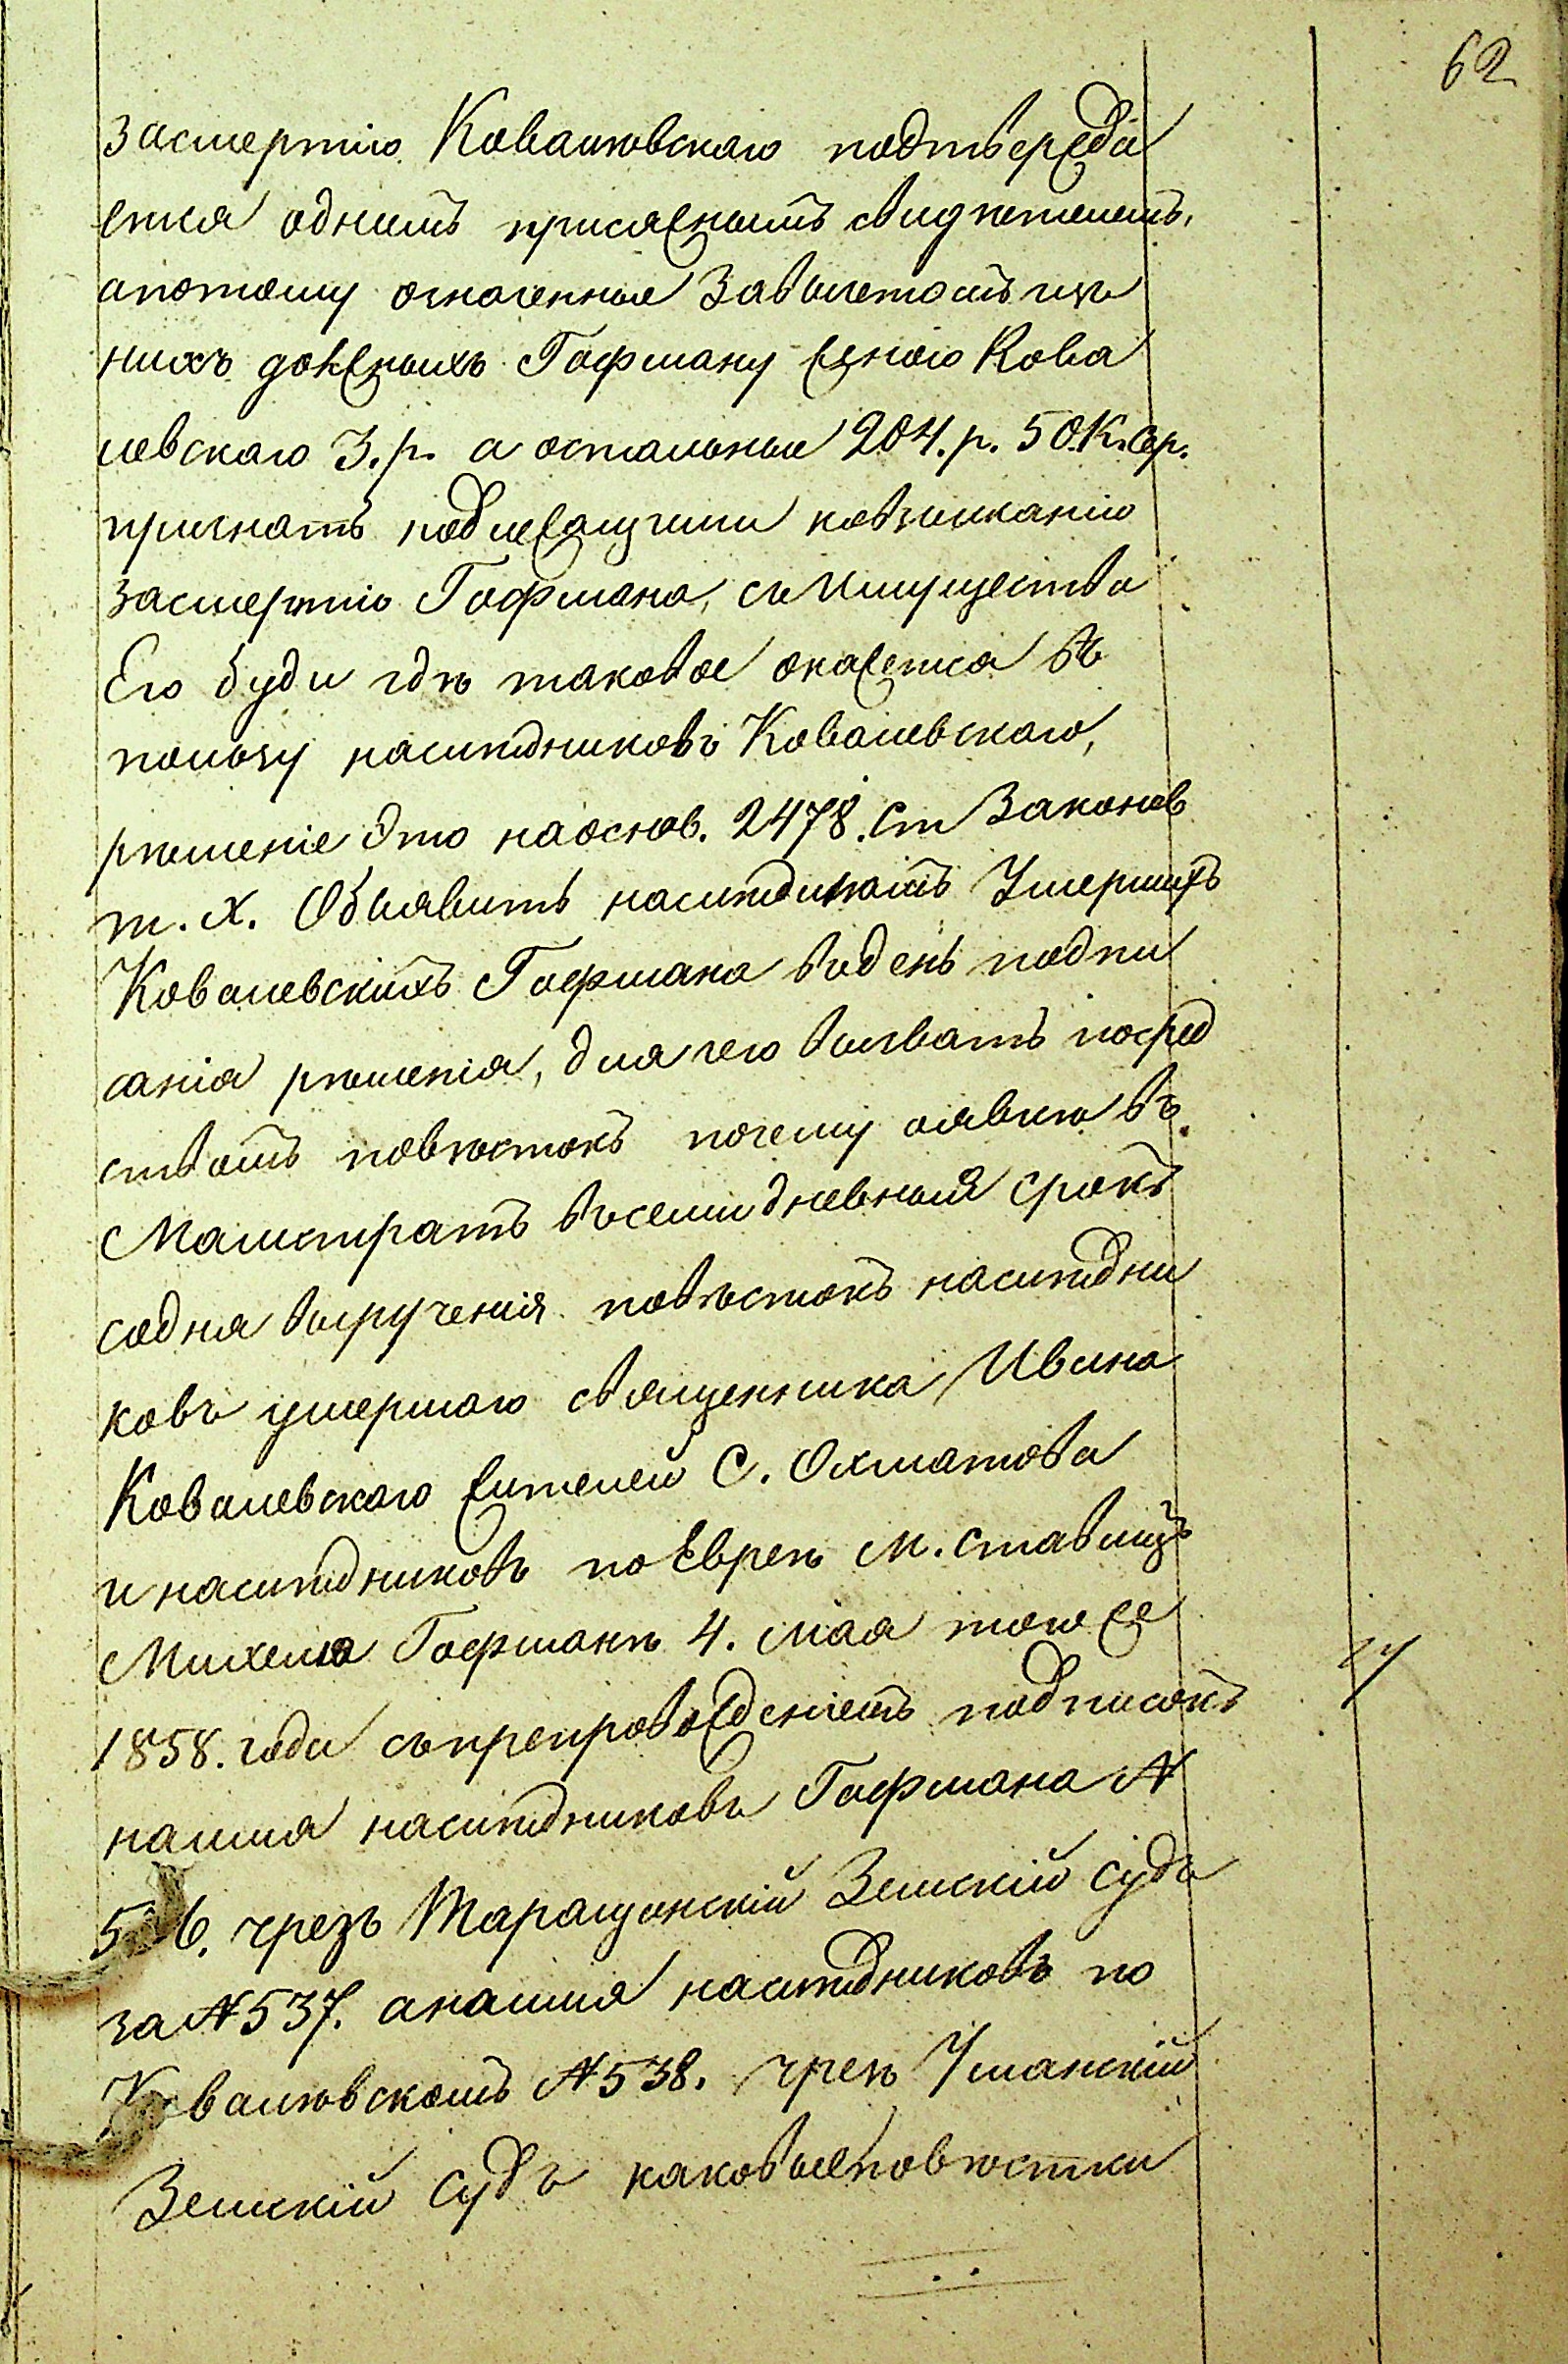 62
засмертію Ковалювскаго подтвержда
ется однимъ присяжнымъ свидѣтелемъ,
апотому означенные завычетомъ изъ
нихъ должныхъ Гофману женою Кова
левскаго 3. р. а остальные 204. р. 50. К. Сер.
признать подлежащими ковзысканію
засмертію Гофмана, съ имущества
Его буди гдѣ таковое окажется въ
пользу наслѣдниковъ Ковалевскаго,
рѣшеніе это наоснов. 2478. Ст Законов
т. X. Объявить наслѣдникамъ Умершихъ
Ковалевскихъ Гофмана въ день подпи
санія рѣшенія, для чего вызвать посред
ствомъ повѣстокъ почему аявкою въ
Магистратъ въсемидневный срокъ
содня вырученія повѣстокъ наслѣдни
ковъ умершаго священника Ивана
Ковалевскаго жителей С. Охматова
и наслѣдниковъ по Евреѣ м. ставищъ
Михеля Гофманѣ 4. мая того же
1858. года съпрепровожденіемъ подписокъ
наимя наслѣдниковъ Гофмана №
5 6. чрезъ Таращанскій Земскій судъ
за № 537. анаимя наслѣдниковъ по
Ковалювскомъ № 538. чрезъ Уманскій
Земскій судъ каковые повѣстки